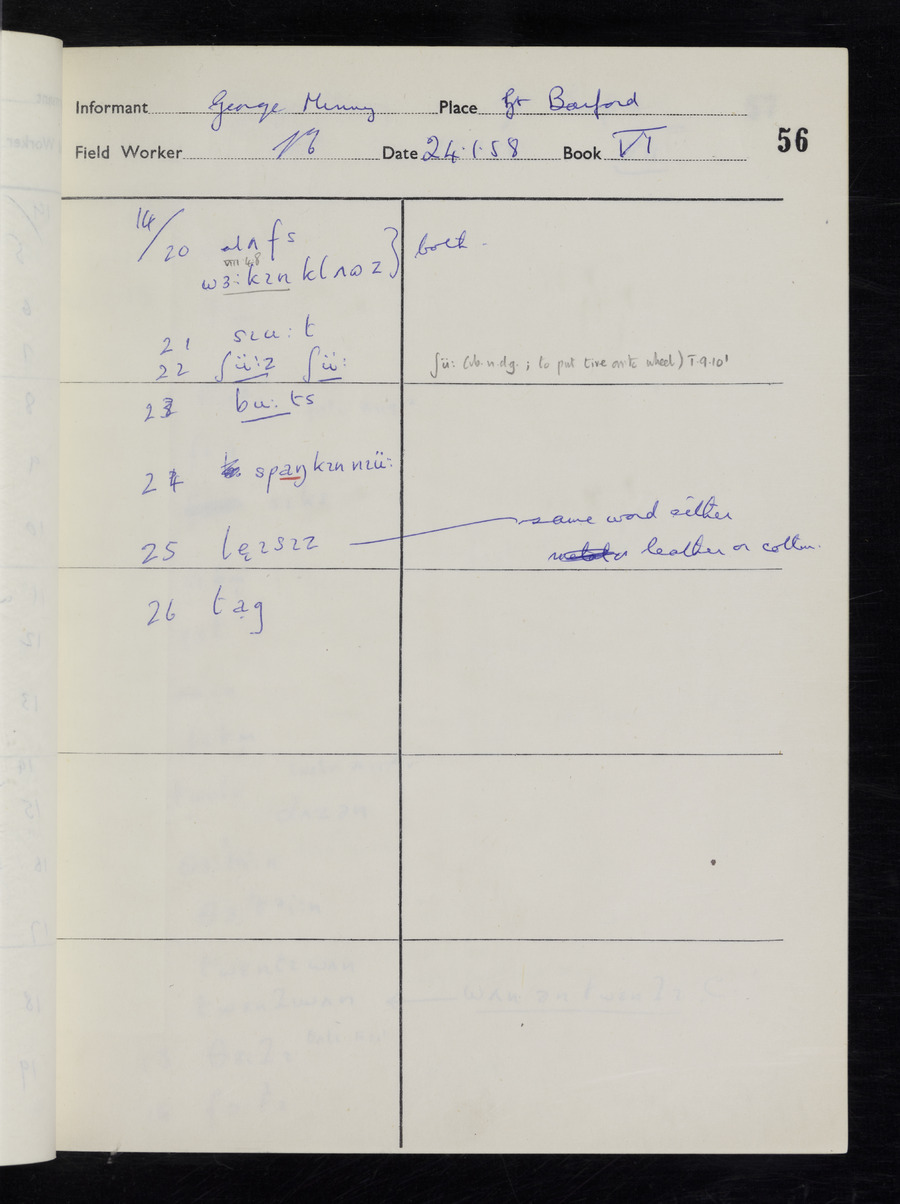 Informant George Minney Place Gt Barford
Field Worker Date 24.1.58 Book VI
56
14/20 slʌfs } both
VIII 4,8
wɜ:kɪn klʌɷz
21 sɪu:t
22 ʃü:z ʃü: ʃü: (vb. n.dg.; to put tire on to wheel) I.9.10¹
23 bu:ts
24 spaŋkɪn nɪü:
25 lęɪsɪz same word either
leather or cotton.
26 ta̩g